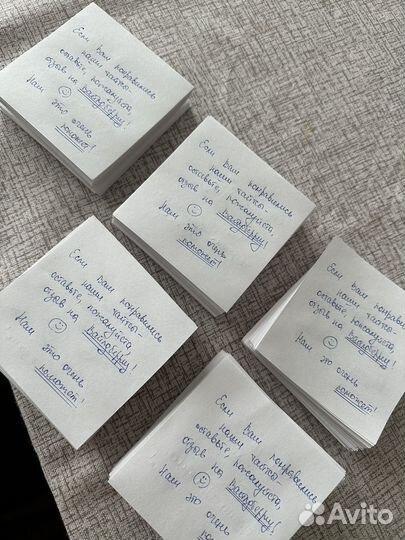 Если Вам понравились
наши чайта-
оставьте, пожалуйста,
отзыв на Вайлдберриз!
Нам это очень
поможет!
Если Вам понравились
наши чайта-
оставьте, пожалуйста,
отзыв на Вайлдберриз!
Нам это очень
поможет!
Если Вам понравились
наши чайта-
оставьте, пожалуйста,
отзыв на Вайлдберриз!
Нам это очень
поможет!
Если Вам понравились
наши чайта-
оставьте, пожалуйста,
отзыв на Вайлдберриз!
Нам это очень
поможет!
Если Вам понравились
наши чайта-
оставьте, пожалуйста,
отзыв на Вайлдберриз!
Нам это очень
Avito